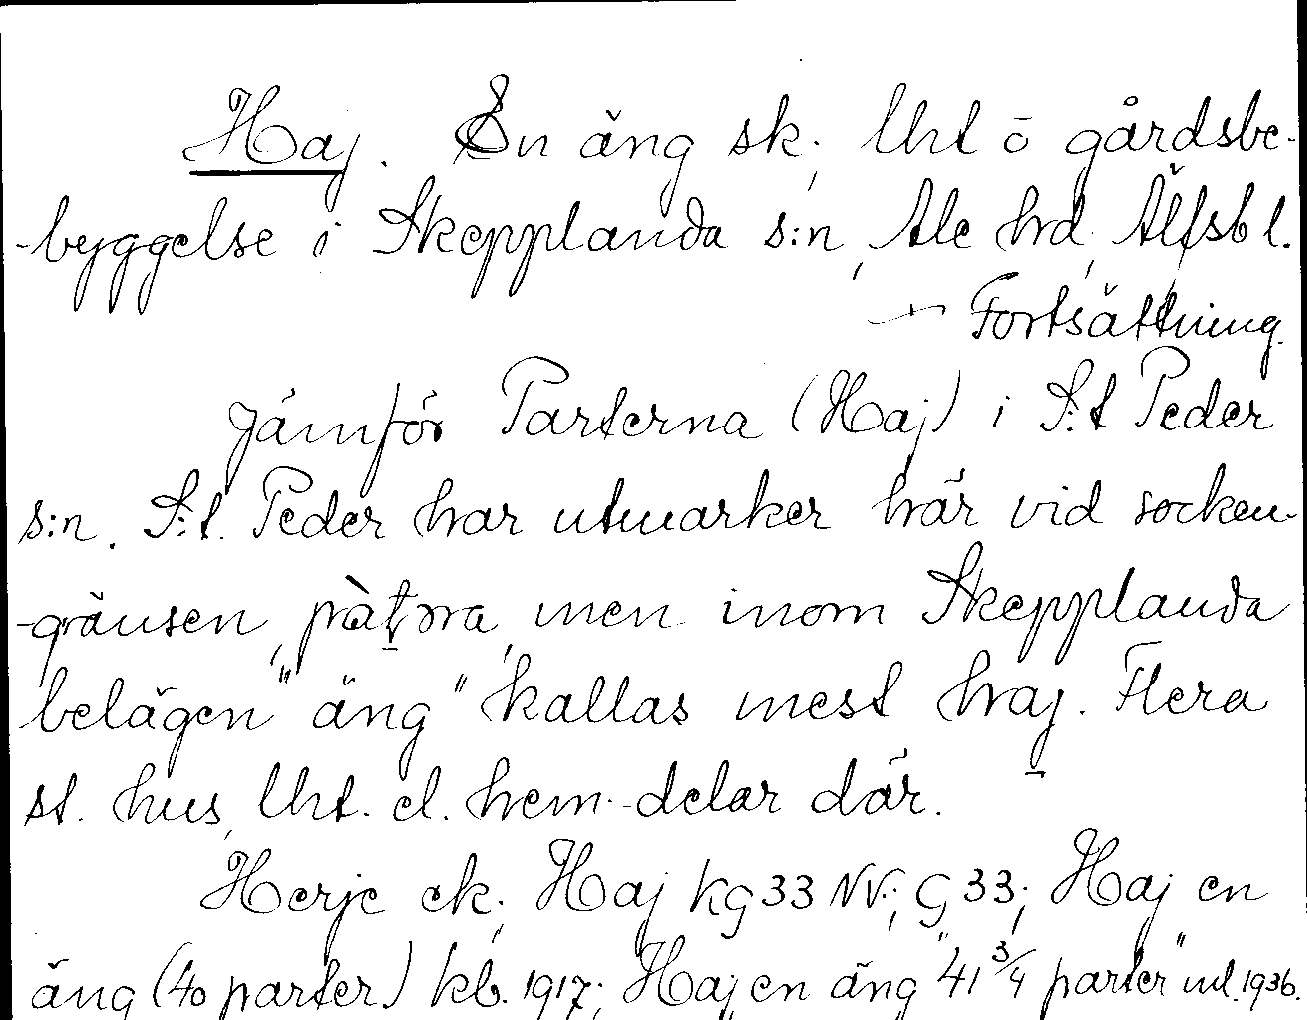 Haj. En äng sk; lht ō gårdsbe-
-byggelse i Skepplanda s:n, Ale hrd, Älfsb l.
— Fortsättning.
Jämför Parterna (Haj) i S:t Peder
s:n. S:t. Peder har utmarker här vid socken-
-gränsen, men inom Skepplanda
belägen "äng" kallas mest haj. Flera
st. hus, lht. el. hem.-delar där.
Herje ek; Haj kg 33 NV; G 33; Haj en
äng (40 parter) kb. 1917; Haj en äng "41 3/4 parter" ml. 1936.